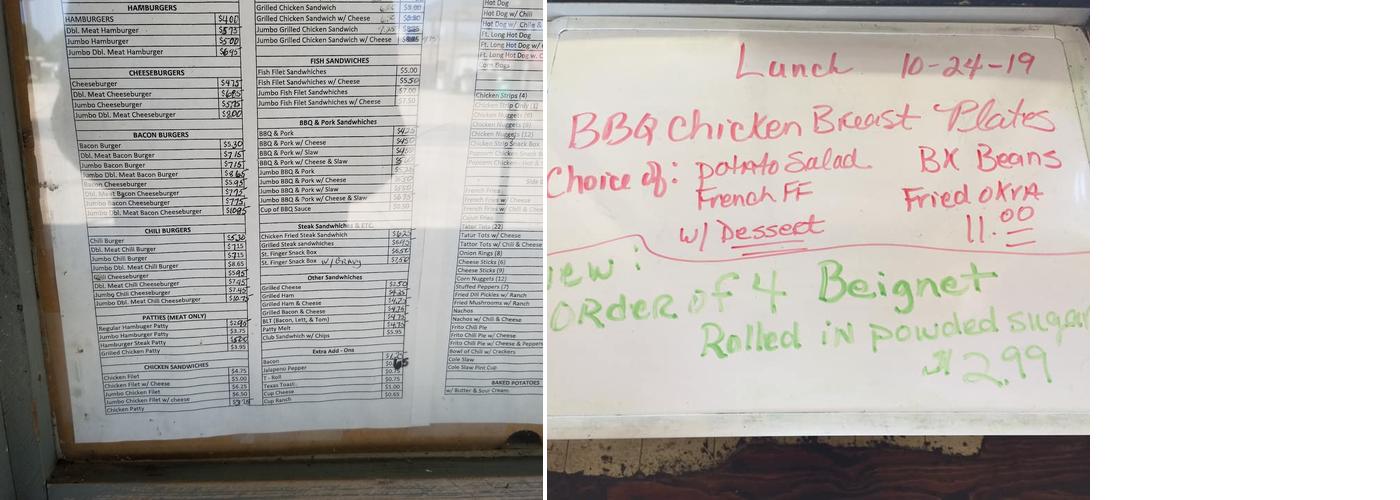 HAMBURGERS
HAMBURGERS $4.00
Dbl. Meat Hamburger $5.75
Jumbo Hamburger $5.00
Jumbo Dbl. Meat Hamburger $6.45
CHEESEBURGERS
Cheeseburger $4.75
Dbl. Meat Cheeseburger
Jumbo Cheeseburger $5.75
Jumbo Dbl. Meat Cheeseburger $8.00
BACON BURGERS
Bacon Burger $5.30
Dbl. Meat Bacon Burger $7.15
Jumbo Bacon Burger $7.15
Jumbo Dbl. Meat Bacon Burger $8.65
Bacon Cheeseburger $5.95
Dbl. Meat Bacon Cheeseburger $7.75
Jumbo Bacon Cheeseburger $7.75
Jumbo Dbl. Meat Bacon Cheeseburger $10.95
CHILI BURGERS
Chili Burger $5.30
Dbl. Meat Chili Burger $7.15
Jumbo Chili Burger $7.15
Jumbo Dbl. Meat Chili Burger $8.65
Chili Cheeseburger $5.95
Dbl. Meat Chili Cheeseburger $7.45
Jumbo Chili Cheeseburger $7.45
Jumbo Dbl. Meat Chili Cheeseburger $10.75
PATTIES (MEAT ONLY)
Regular Hambuger Patty
Jumbo Hamburger Patty $3.75
Hamburger Steak Patty
Grilled Chicken Patty $3.95
CHICKEN SANDWICHES
Chicken Filet $4.75
Chicken Filet w/ Cheese $5.00
Jumbo Chicken Filet $6.25
Jumbo Chicken Filet w/ cheese $6.50
Chicken Patty
Grilled Chicken Sandwich
Grilled Chicken Sandwich w/ Cheese
Jumbo Grilled Chicken Sandwich
Jumbo Grilled Chicken Sandwich w/ Cheese
FISH SANDWICHES
Fish Filet Sandwhiches $5.00
Fish Filet Sandwhiches w/ Cheese $5.50
Jumbo Fish Filet Sandwhiches $7.00
Jumbo Fish Filet Sandwhiches w/ Cheese $7.50
BBQ & Pork Sandwiches
BBQ & Pork $4.25
BBQ & Pork w/ Cheese
BBQ & Pork w/ Slaw
BBQ & Pork w/ Cheese & Slaw
Jumbo BBQ & Pork
Jumbo BBQ & Pork w/ Cheese
Jumbo BBQ & Pork w/ Slaw
Jumbo BBQ & Pork w/ Cheese & Slaw
Cup of BBQ Sauce $0.50
Steak Sandwiches & ETC.
Chicken Fried Steak Sandwich
Grilled Steak sandwiches
St. Finger Snack Box $6.50
St. Finger Snack Box w/ GRAVY $7.50
Other Sandwiches
Grilled Cheese $2.50
Grilled Ham
Grilled Ham & Cheese $4.75
Grilled Bacon & Cheese $4.75
BLT (Bacon, Lett, & Tom) $4.75
Patty Melt $4.75
Club Sandwich w/ Chips $5.95
Extra Add - Ons
Bacon
Jalapeno Pepper
T - Roll $0.75
Texas Toast $0.75
Cup Cheese $1.00
Cup Ranch $0.65
Hot Dog
Hot Dog w/ Chili
Hot Dog w/ Chile &
Ft. Long Hot Dog
Ft. Long Hot Dog w/
Ft. Long Hot Dog w.
Corn Dogs
Chicken Strips (4)
Chicken Strip Only (1)
Chicken Nuggets (6)
Chicken Nuggets (9)
Chicken Nuggets (12)
Chicken Strip Snack Box
Side
French Fries
French Fries w/ Cheese
French Fries w/ Chili & Chee
Cajun Fries
Tator Tots (22)
Tatur Tots w/ Cheese
Tattor Tots w/ Chili & Cheese
Onion Rings (8)
Cheese Sticks (6)
Cheese Sticks (9)
Corn Nuggets (12)
Stuffed Peppers (7)
Fried Dill Pickles w/ Ranch
Fried Mushrooms w/ Ranch
Nachos
Nachos w/ Chili & Cheese
Frito Chili Pie
Frito Chili Pie w/ Cheese
Frito Chili Pie w/ Cheese & Peppers
Bowl of Chili w/ Crackers
Cole Slaw
Cole Slaw Pint Cup
BAKED POTATOES
w/ Butter & Sour Cream
Lunch 10-24-19
BBQ Chicken Breast Plates
Choice of: Potato Salad BK Beans
French FF Fried OKrA
w/ Dessert 11.00
ew:
ORder of 4 Beignet
Rolled iN powded sugar
$2.99